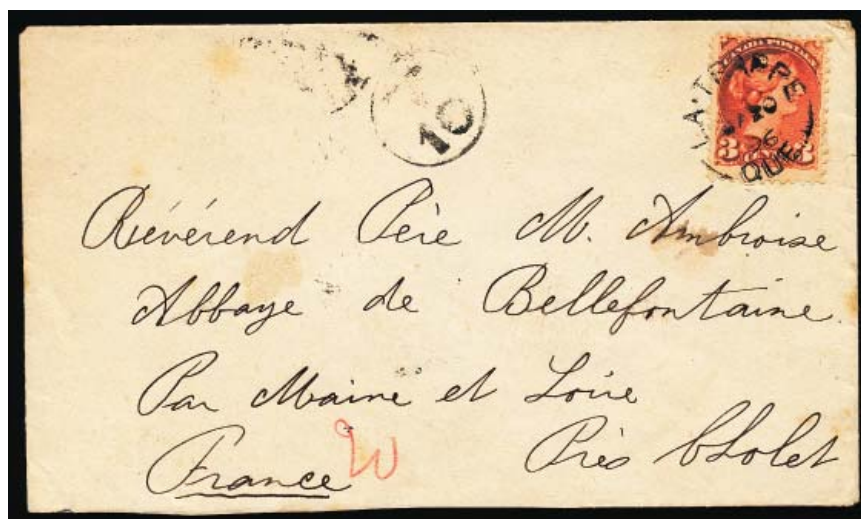 10
CANADA POSTAGE
LA TRAPPE
QUE
3 3
Révérend Père M. Ambroise
Abbaye de Bellefontaine
Par Maine et Loire
France Près Cholet